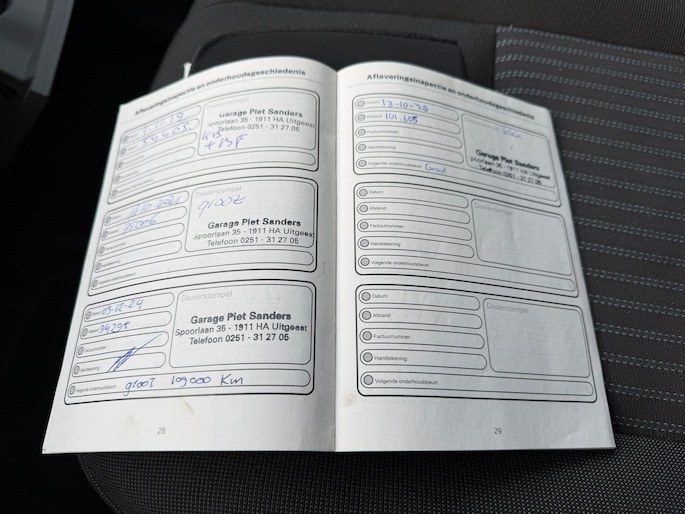 Afleveringsinspectie en onderhoudsgeschiedenis
Dealerstempel
Garage Piet Sanders
Spoorlaan 35 - 1911 HA Uitgeest
Telefoon 0251 - 31 27 05
+ BF
Dealerstempel
groot
Garage Piet Sanders
Spoorlaan 35 - 1911 HA Uitgeest
Telefoon 0251 - 31 27 05
Datum: 03-12-24
Afstand: 94298
Factuurnummer:
Handtekening:
Volgende onderhoudsbeurt: groot 109000 Km
Dealerstempel
Garage Piet Sanders
Spoorlaan 35 - 1911 HA Uitgeest
Telefoon 0251 - 31 27 05
28
Afleveringsinspectie en onderhoudsgeschiedenis
Datum: 13-10-25
Afstand: 101.605
Factuurnummer:
Handtekening:
Volgende onderhoudsbeurt: Groot
Dealerstempel
klein
Garage Piet Sanders
Spoorlaan 35 - 1911 HA Uitgeest
Telefoon 0251 - 31 27 05
Datum:
Afstand:
Factuurnummer:
Handtekening:
Volgende onderhoudsbeurt:
Dealerstempel
Datum:
Afstand:
Factuurnummer:
Handtekening:
Volgende onderhoudsbeurt:
Dealerstempel
29